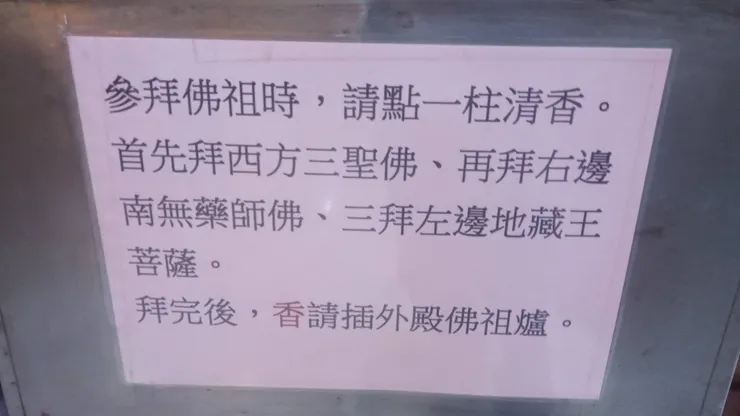 參拜佛祖時，請點一柱清香。
首先拜西方三聖佛、再拜右邊
南無藥師佛、三拜左邊地藏王
菩薩。
拜完後，香請插外殿佛祖爐。